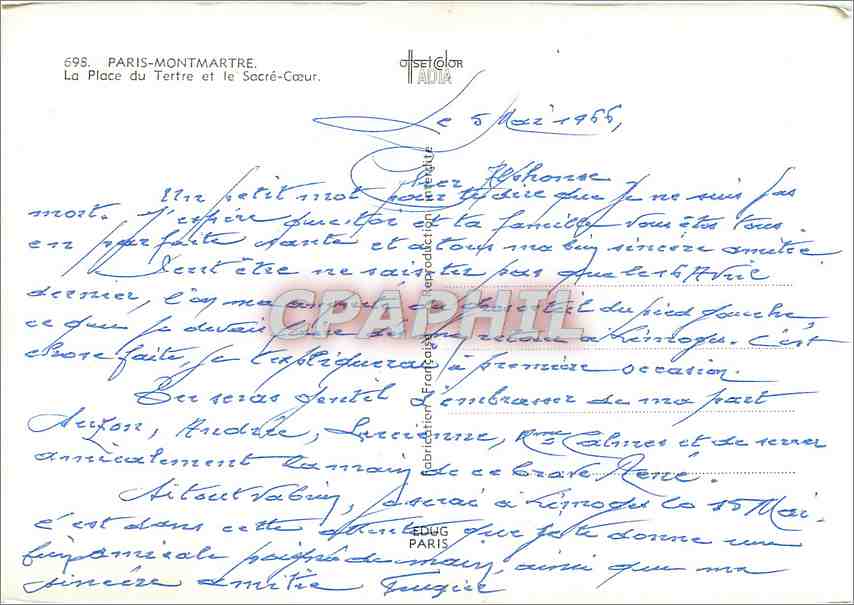 698. PARIS-MONTMARTRE.
La Place du Tertre et le Sacré-Cœur.
OffSETCOLOR
ADIA
Le 5 Mai 1966,
Cher Alphonse
Un petit mot pour te dire que je ne suis pas
mort. J'espère que toi et ta famille vous êtes tous
en parfaite santé et à tous ma bien sincère amitié
Peut être ne sais tu pas que le 16 Avril
dernier, l'on m'a amputé du pied gauche
ce que je devais faire dès mon retour à Limoges. C'est
chose faite, je t'expliquerai à première occasion.
Tu seras gentil d'embrasser de ma part
Suzon, Andrée, Lucienne, Calmes et de serrer
amicalement la main de ce brave René.
Si tout va bien, je serai à Limoges le 15 Mai.
c'est dans cette attente que je te donne une
bien amicale poignée de main, ainsi que ma
sincère amitié
Fabrication Française Reproduction Interdite
EDUG
PARIS
CPAPHIL